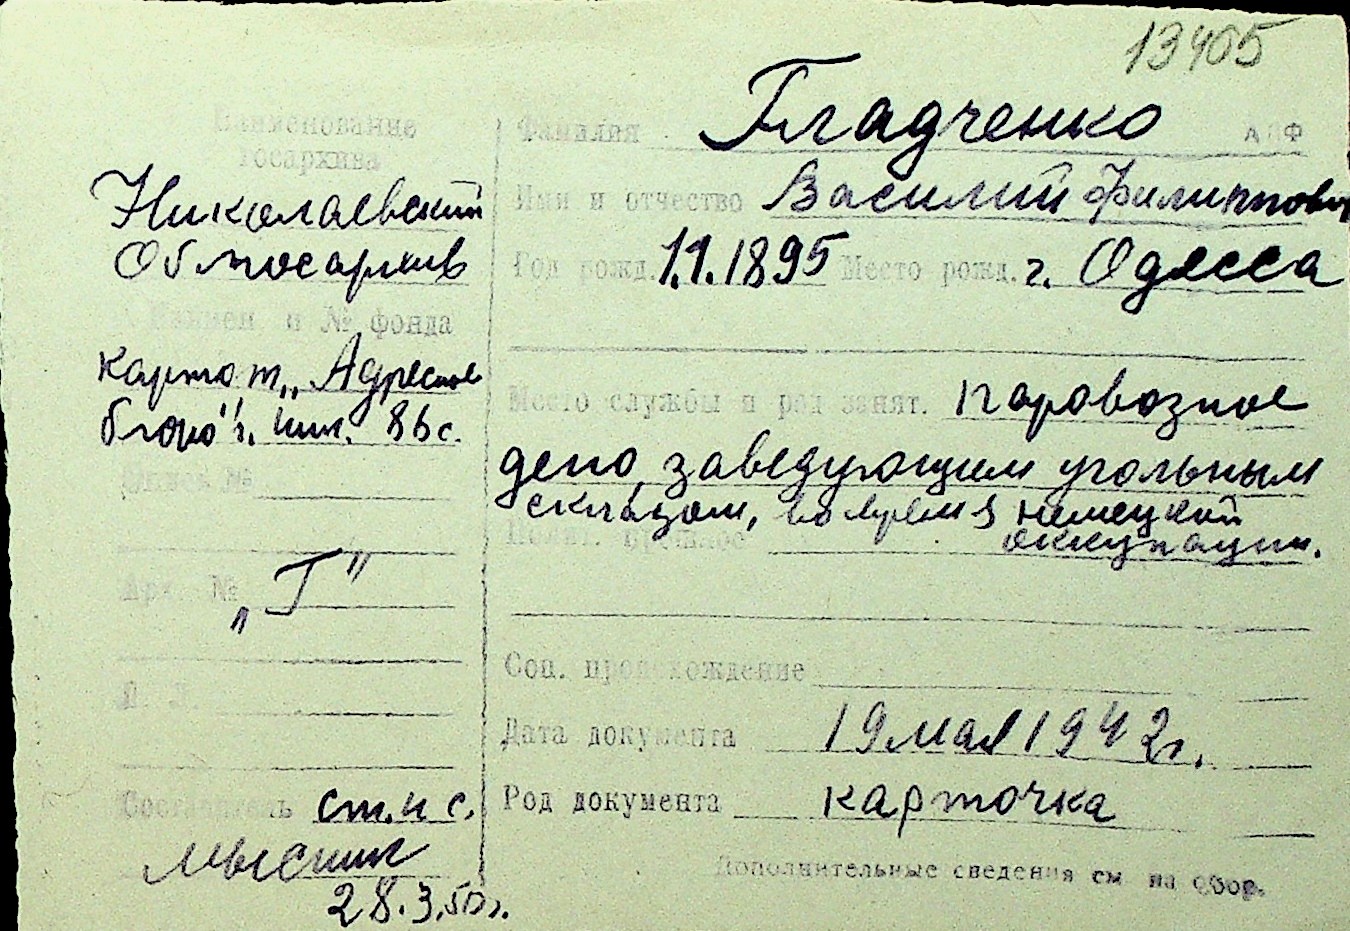 13405
Наименование
госархива
Николаевский
Облгосархив
Наимен и № фонда
картот. „Адресное
бюро" г. Ник. 86 с.
Опись №
Арх. №
„Г"
Составитель ст. н с.
Мысник
28.3.50г.
Фамилия Гладченко
Имя и отчество Василий Филиппович
Год рожд. 1.1.1895 Место рожд. г. Одесса
Место службы и род занят. паровозное
депо, заведующим угольным
складом, во время немецкой
оккупации.
Полит. прошлое
Соц. происхождение
Дата документа 19 мая 1942г.
Род документа карточка
Дополнительные сведения см на обор.